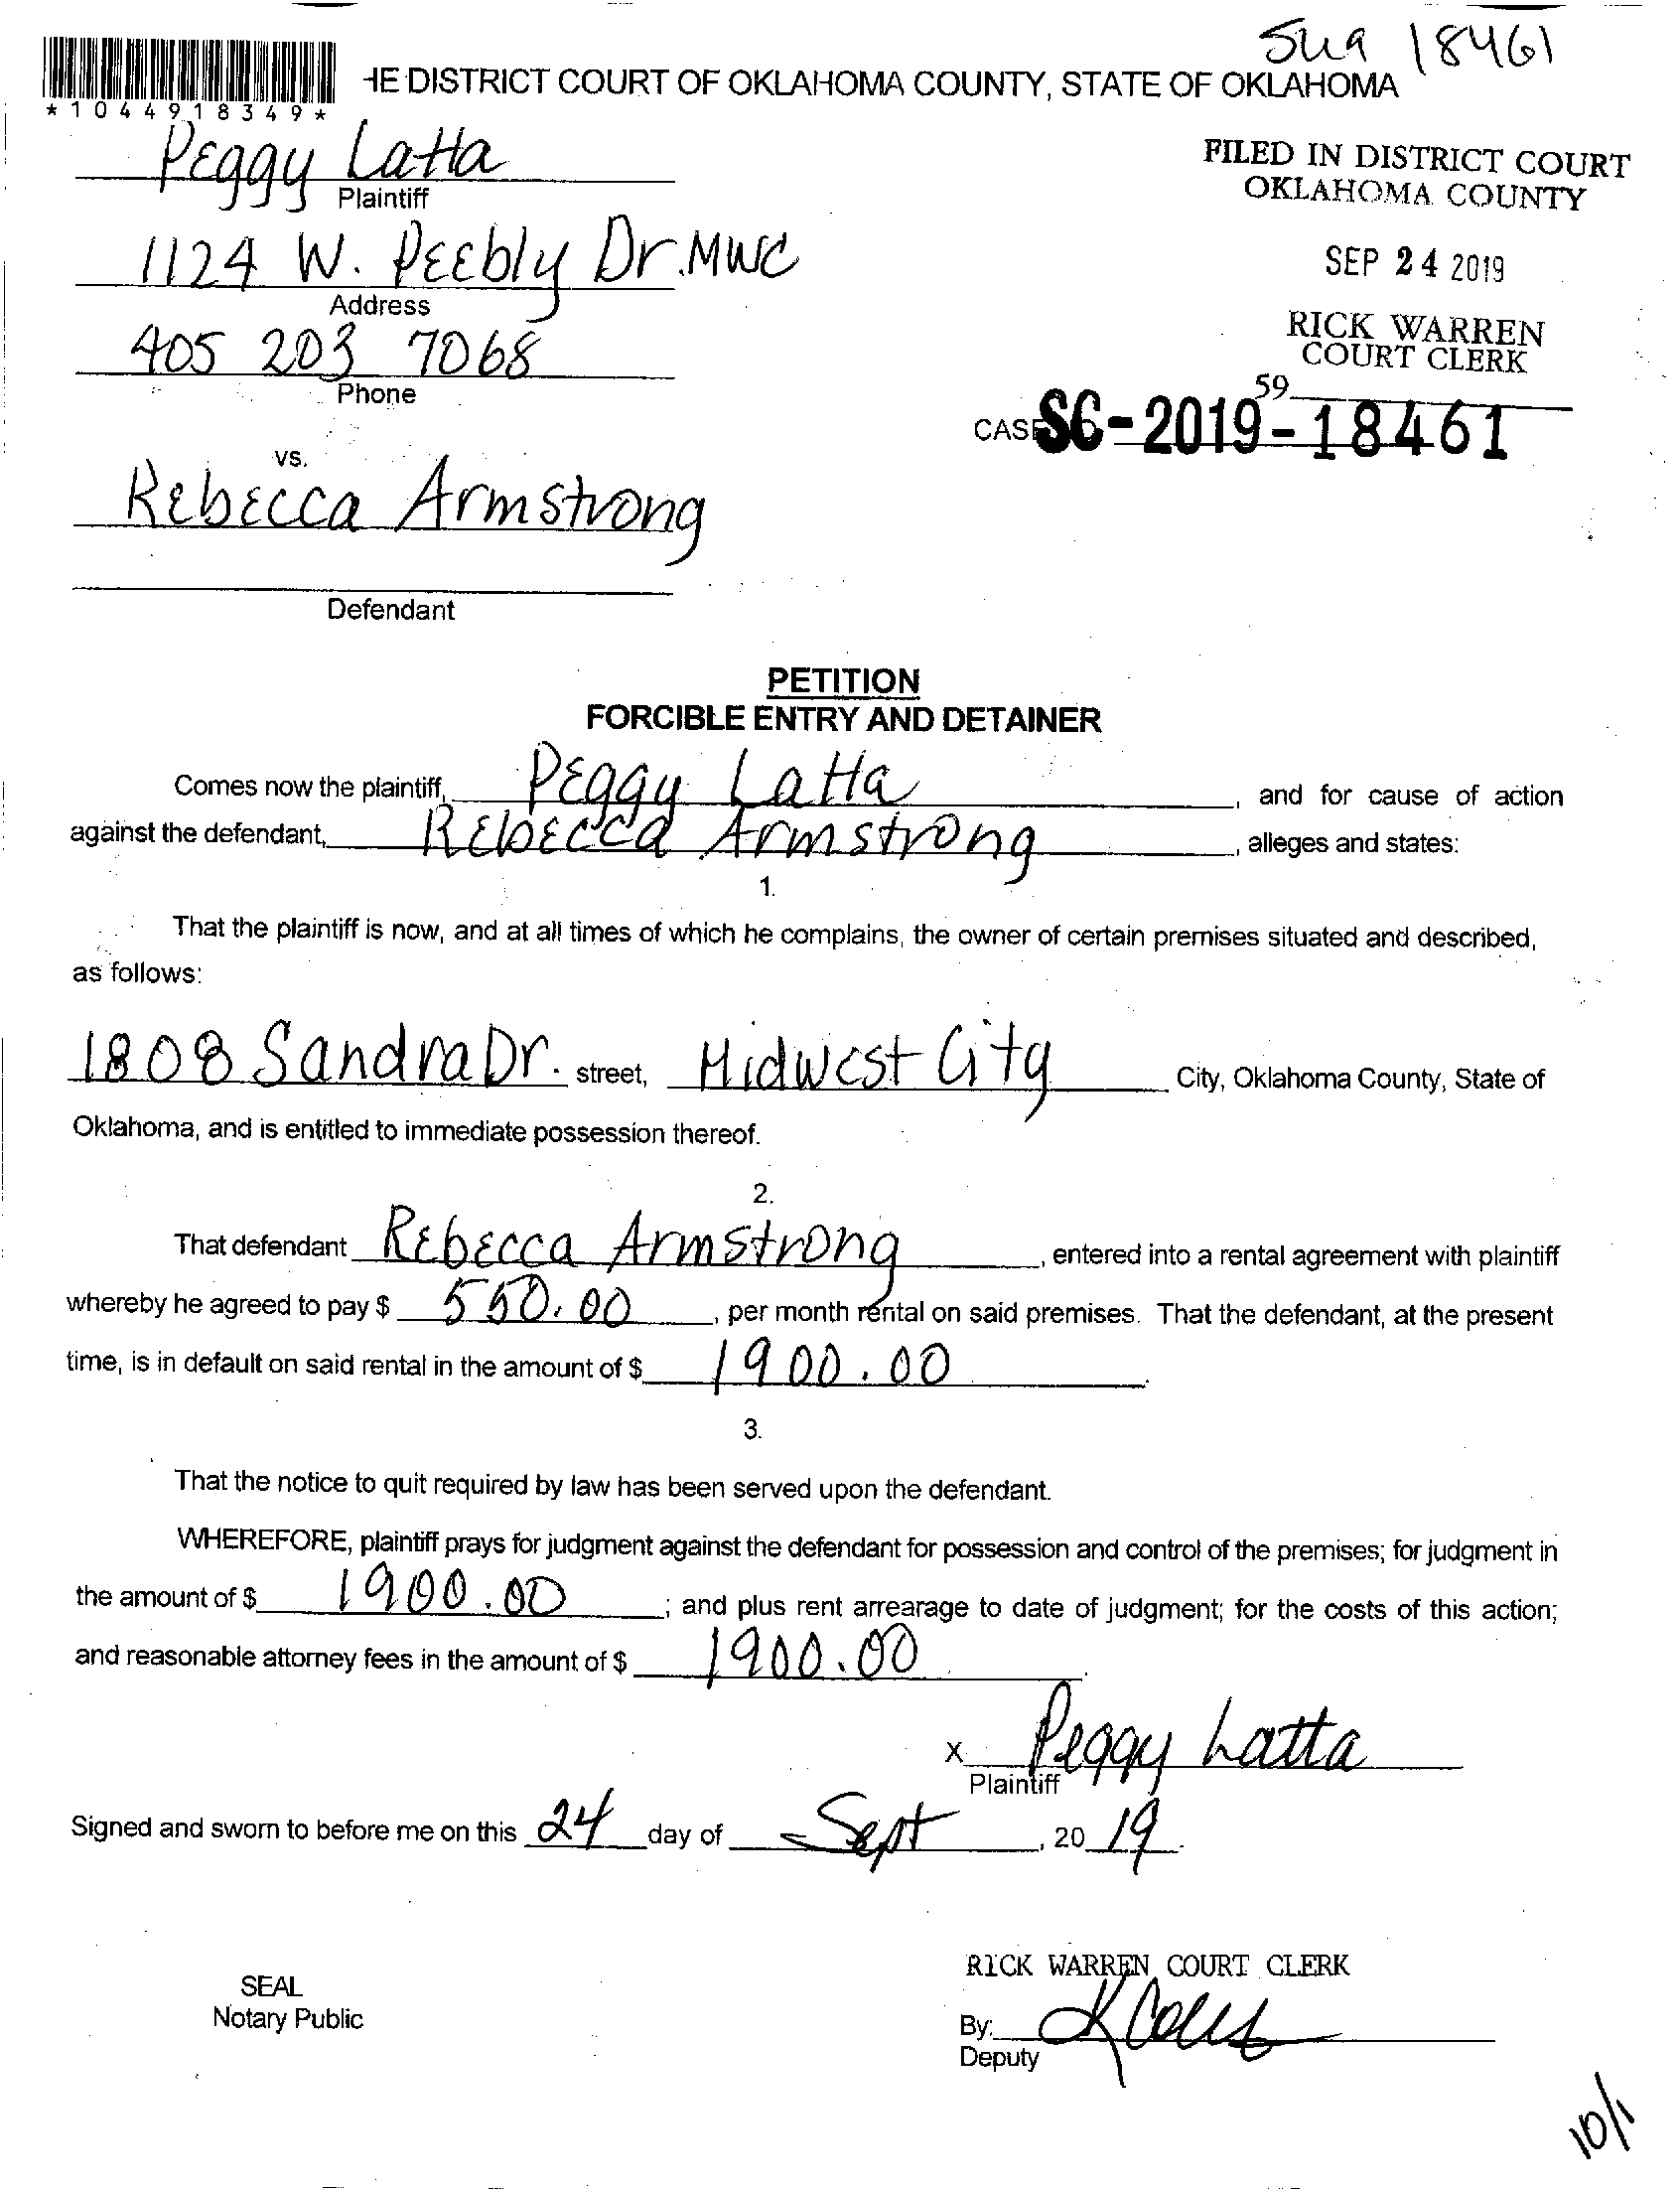 Sug 18461
HE DISTRICT COURT OF OKLAHOMA COUNTY, STATE OF OKLAHOMA
*1044918349*
Peggy Latta
Plaintiff
FILED IN DISTRICT COURT
OKLAHOMA COUNTY
1124 W. Peebly Dr. MWC
Address
SEP 24 2019
405 203 7068
Phone
RICK WARREN
COURT CLERK
59
CASE SC-2019-18461
vs.
Rebecca Armstrong
Defendant
PETITION
FORCIBLE ENTRY AND DETAINER
Comes now the plaintiff, Peggy Latta, and for cause of action
against the defendant, Rebecca Armstrong, alleges and states:
1.
That the plaintiff is now, and at all times of which he complains, the owner of certain premises situated and described,
as follows:
1808 Sandra Dr. street, Midwest City City, Oklahoma County, State of
Oklahoma, and is entitled to immediate possession thereof.
2.
That defendant Rebecca Armstrong, entered into a rental agreement with plaintiff
whereby he agreed to pay $ 550.00, per month rental on said premises. That the defendant, at the present
time, is in default on said rental in the amount of $ 1900.00.
3.
That the notice to quit required by law has been served upon the defendant.
WHEREFORE, plaintiff prays for judgment against the defendant for possession and control of the premises; for judgment in
the amount of $ 1900.00; and plus rent arrearage to date of judgment; for the costs of this action;
and reasonable attorney fees in the amount of $ 1900.00.
x Peggy Latta
Plaintiff
Signed and sworn to before me on this 24 day of Sept, 2019.
RICK WARREN COURT CLERK
SEAL
Notary Public
By:
Deputy
10/1